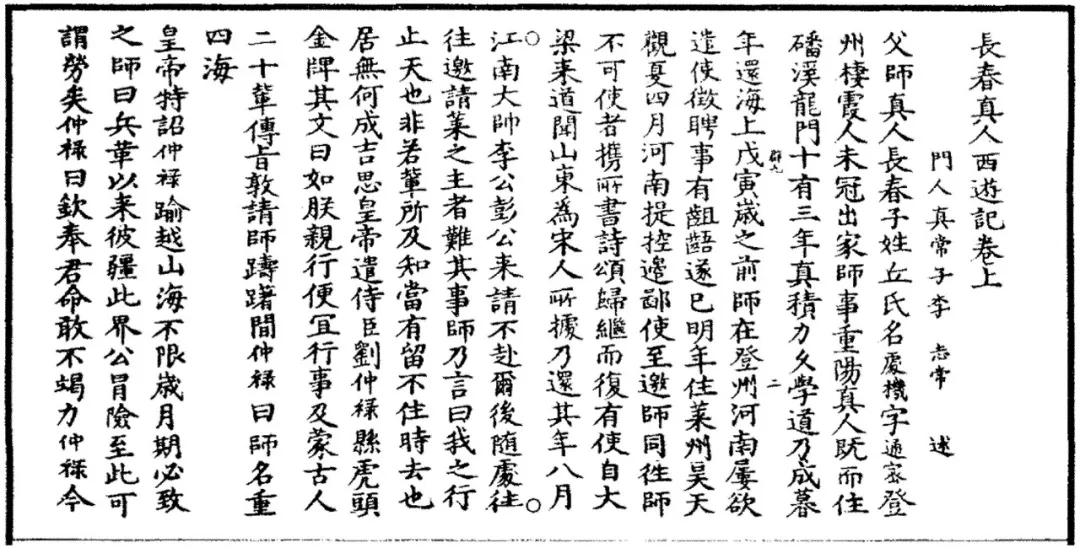 長春真人西遊記卷上
門人真常子李志常述
父師真人長春子姓丘氏名處機字通密登
州棲霞人未冠出家師事重陽真人既而住
磻溪龍門十有三年真積力久學道乃成暮
年還海上戊寅歲之前師在登州河南屢欲
遣使徵聘事有齟齬遂已明年住萊州昊天
觀夏四月河南提控邊鄙使至邀師同往師
不可使者攜所書詩頌歸繼而復有使自大
梁来道聞山東為宋人所據乃還其年八月
江南大帥李公彭公来請不赴爾後隨處往
往邀請萊之主者難其事師乃言曰我之行
止天也非若輩所及知當有留不住時去也
居無何成吉思皇帝遣侍臣劉仲祿縣虎頭
金牌其文曰如朕親行便宜行事及蒙古人
二十輩傳旨敦請師躊躇間仲祿曰師名重
四海
皇帝特詔仲祿踰越山海不限歲月期必致
之師曰兵革以来彼疆此界公冒險至此可
謂勞矣仲祿曰欽奉君命敢不竭力仲祿今